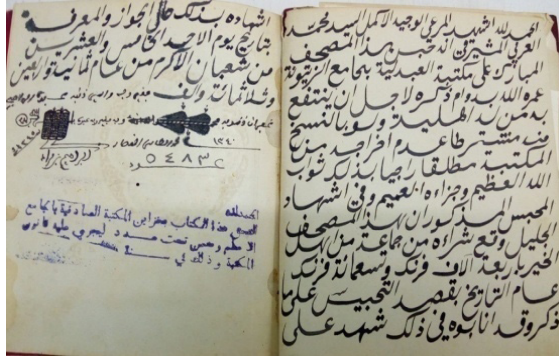 الحمد لله اشهد المربي الوجيد الاكمل السيد محمد
العربي انه حبس هذا المصحف
المبارك على مكتبة العبدلية بجامع الزيتونة
عمره الله بدوام ذكره لاجل ان ينتفع
به من له اهلية ولو بالنسخ
منه مشترطا عدم اخراجه من
المكتبة مطلقا راجيا بذلك ثواب
الله العظيم وجزاءه العميم وفي اشهاد
المحبس المذكور ان هذا المصحف
الجليل وقع شراءه من جماعة من اهل
الخير باربعة آلاف فرنك وتسعمائة فرنك
عام التاريخ بقصد التحبيس على ما
ذكر وقد انابوه في ذلك شهد على
اشهاده بذلك حالي الجواز والمعرفة
بتاريخ يوم الاحد الخامس والعشرين
من شعبان الاكرم من عام ثمانية واربعين
وثلاثمائة والف
٥٤٨٣
عدد
الحمد لله
هذا الكتاب بخزائن المكتبة الصادقية بالجامع
الاعظم وضمن تحت عدد ليجري عليه قانون
المكتبة وذلك في سنة